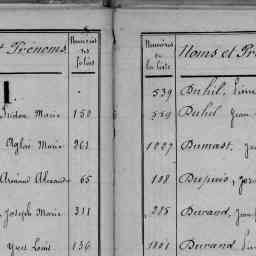 Prénoms
Numéros
des
folios
Marie 150
Aglaé Marie 261
Armand Alexandre 65
Joseph Marie 211
Yves Louis 136
Numéros
de
la liste
Noms et Pr
539 Buhil,
529 Buhel Jean
1027 Dumast, J
108 Dupuis, Jo
215 Durand, Jean
1801 Durand